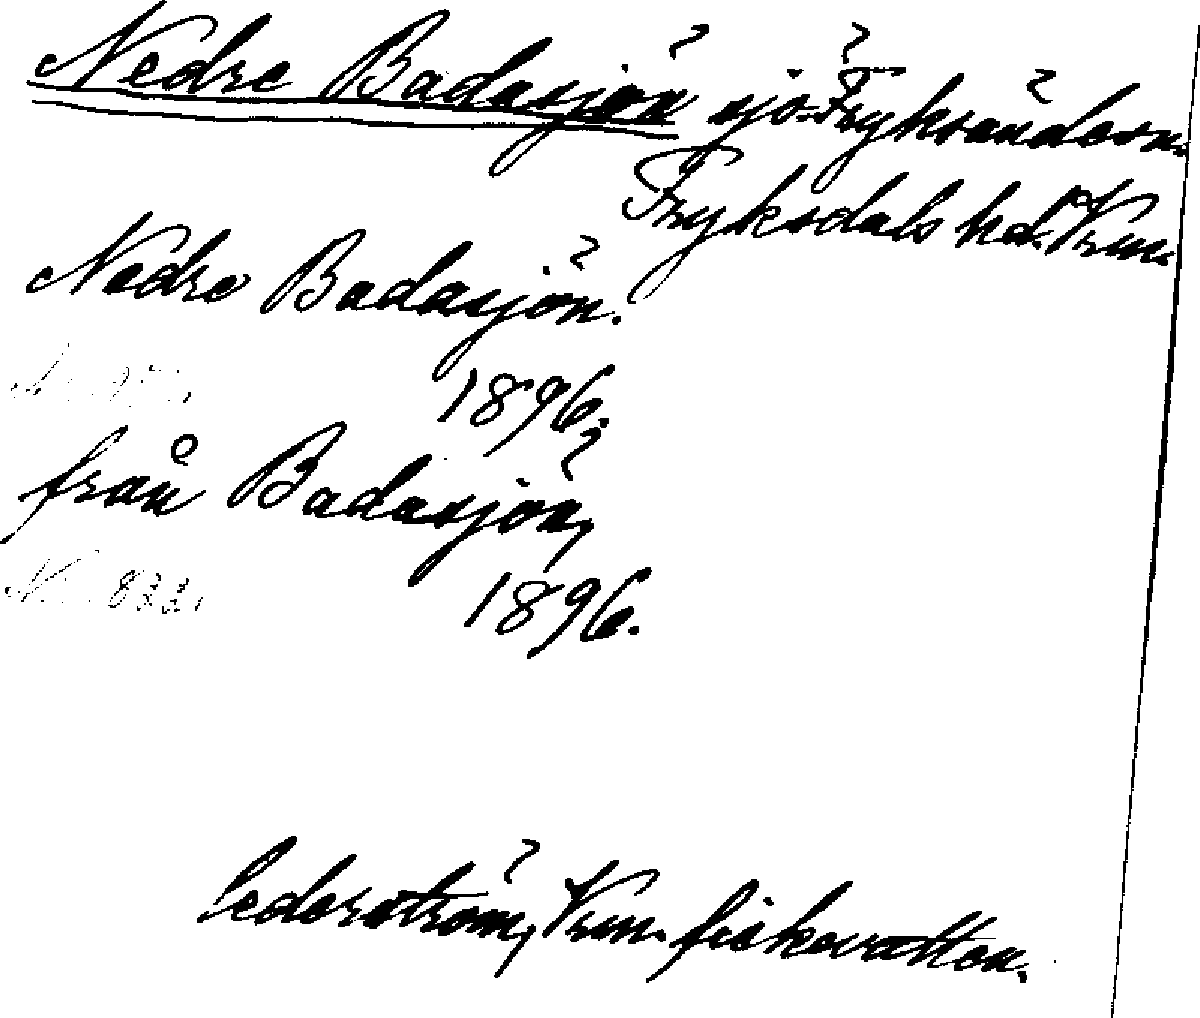 Nedre Badasjön sjö. Fryksänden.
Fryksdals hd. Vrm.
Nedre Badasjön.
1896;
från Badasjön,
822. 1896.
Cederström, Vrm. fiskevatten.